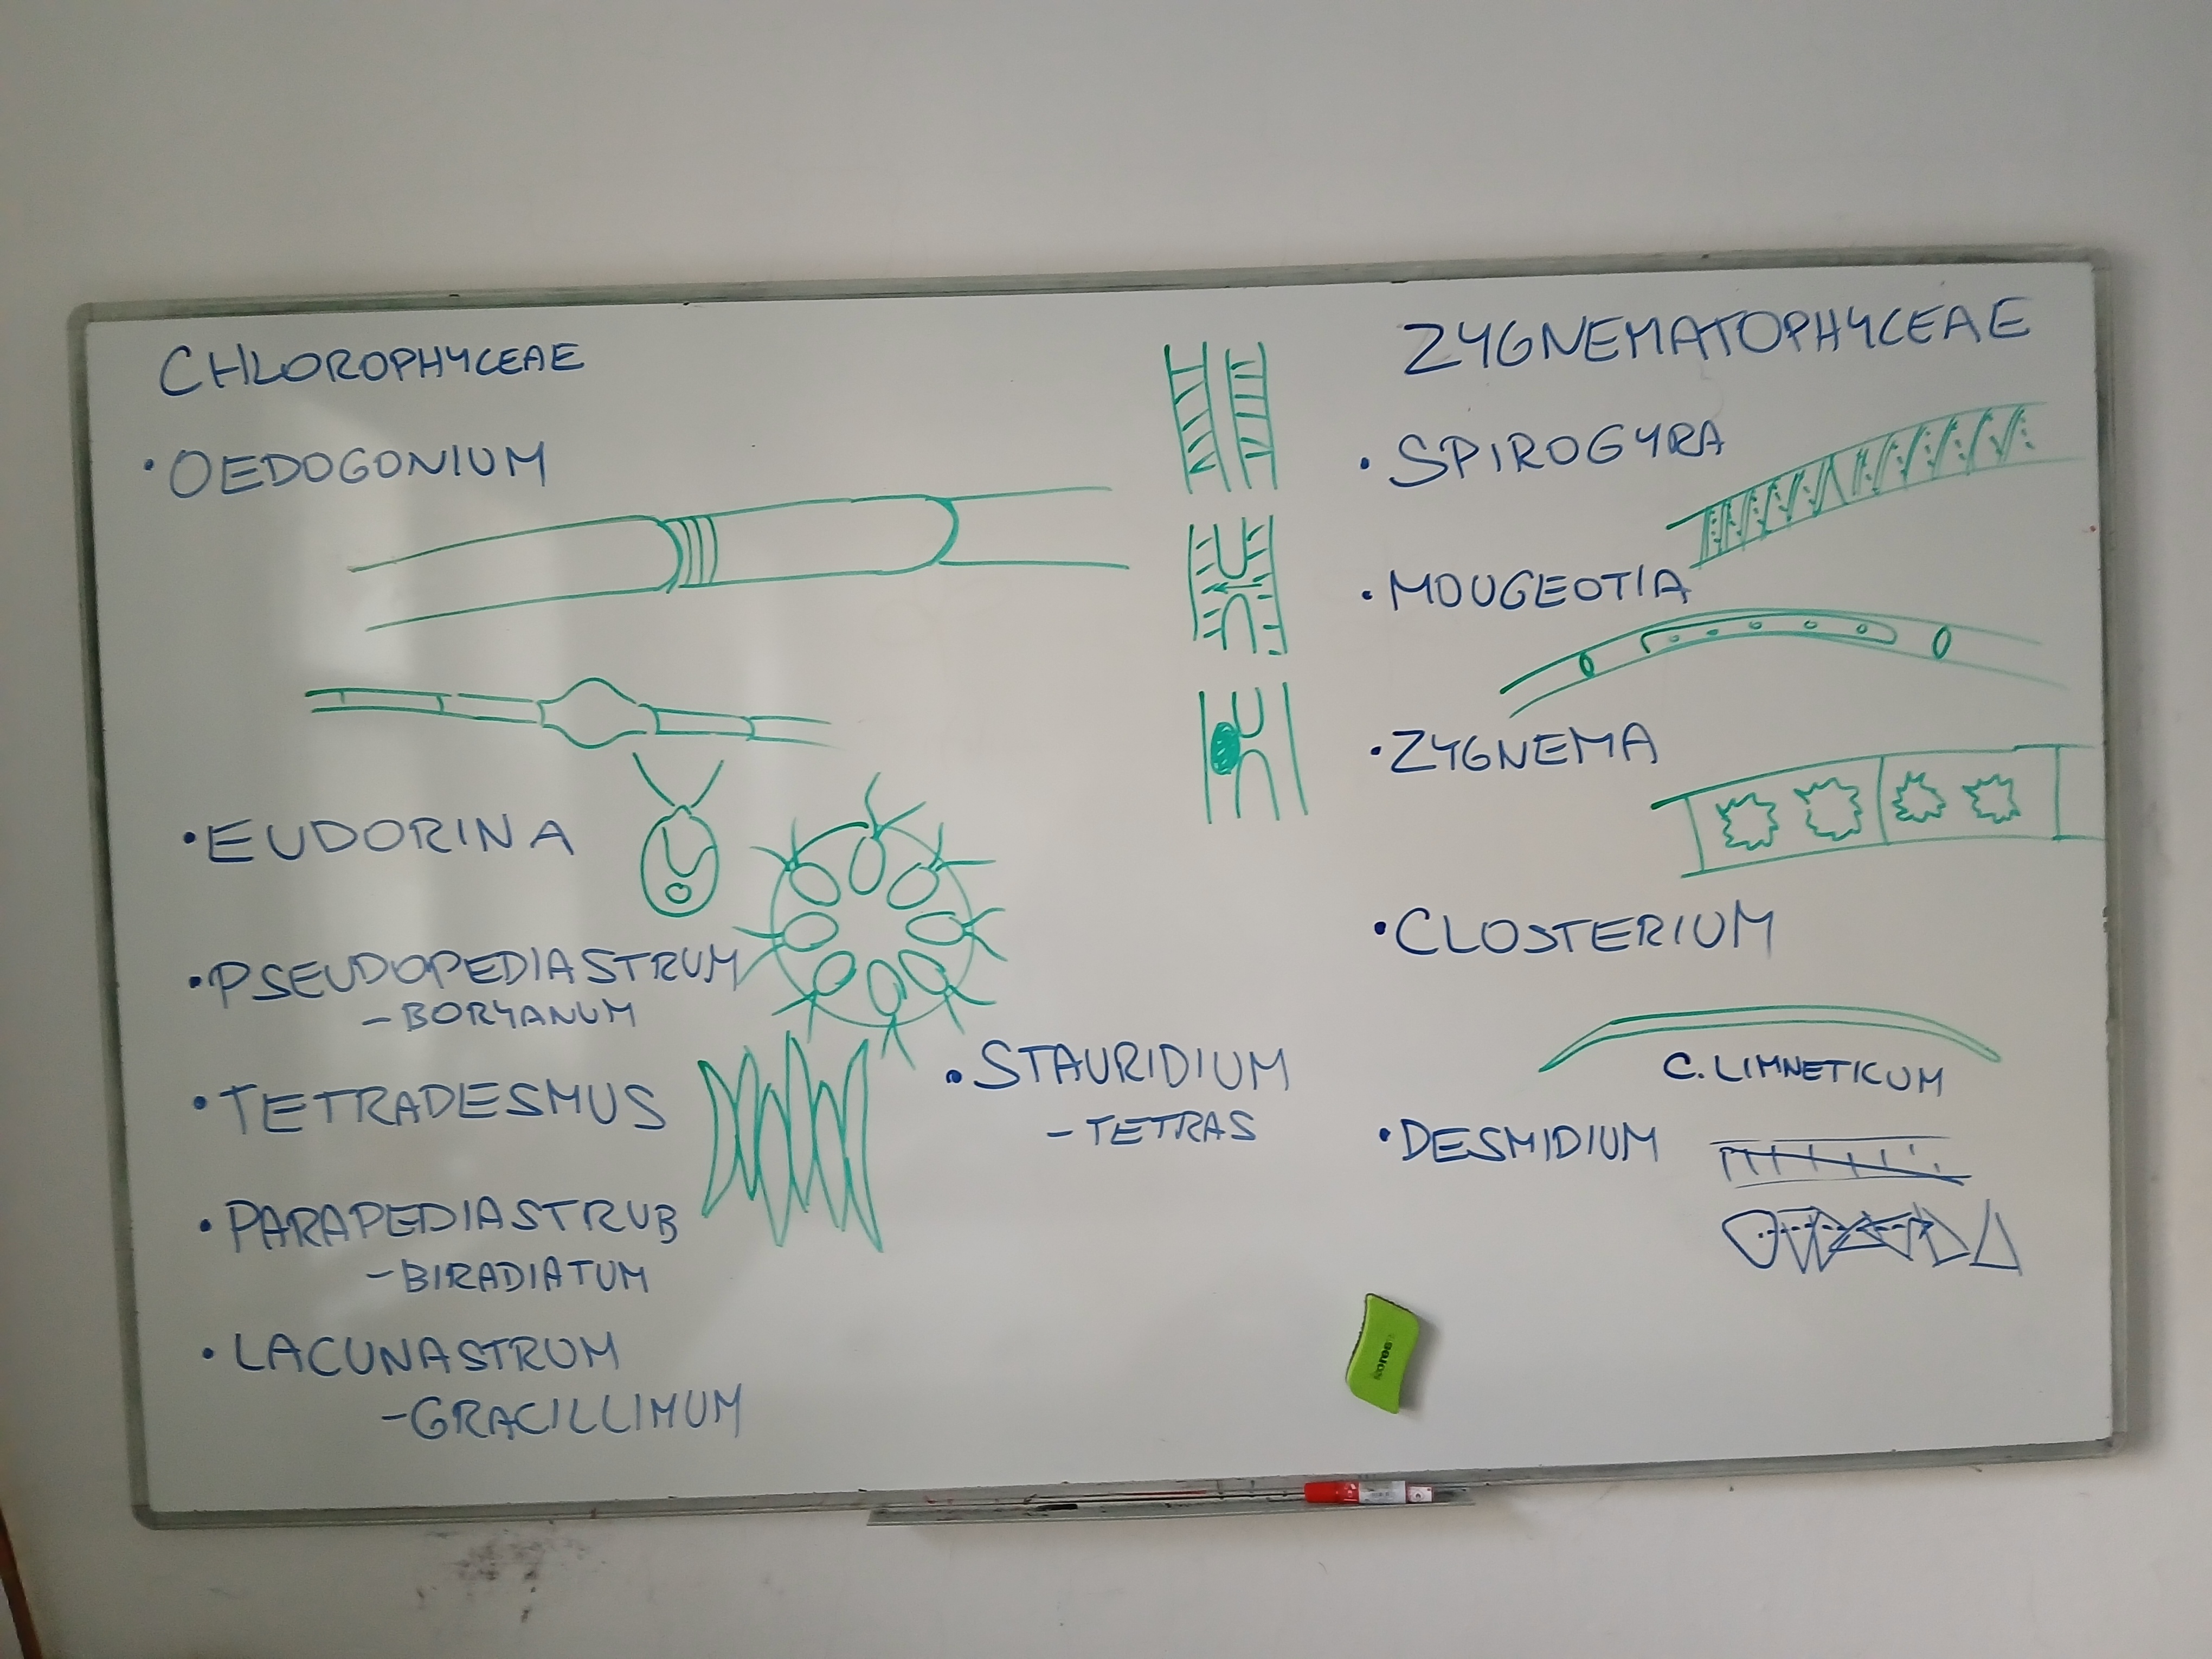 CHLOROPHYCEAE
• OEDOGONIUM
• EUDORINA
• PSEUDOPEDIASTRUM
- BORYANUM
• TETRADESMUS
• PARAPEDIASTRUB
- BIRADIATUM
• LACUNASTRUM
- GRACILLIMUM
• STAURIDIUM
- TETRAS
ZYGNEMATOPHYCEAE
• SPIROGYRA
• MOUGEOTIA
• ZYGNEMA
• CLOSTERIUM
C. LIMNETICUM
• DESMIDIUM
kores